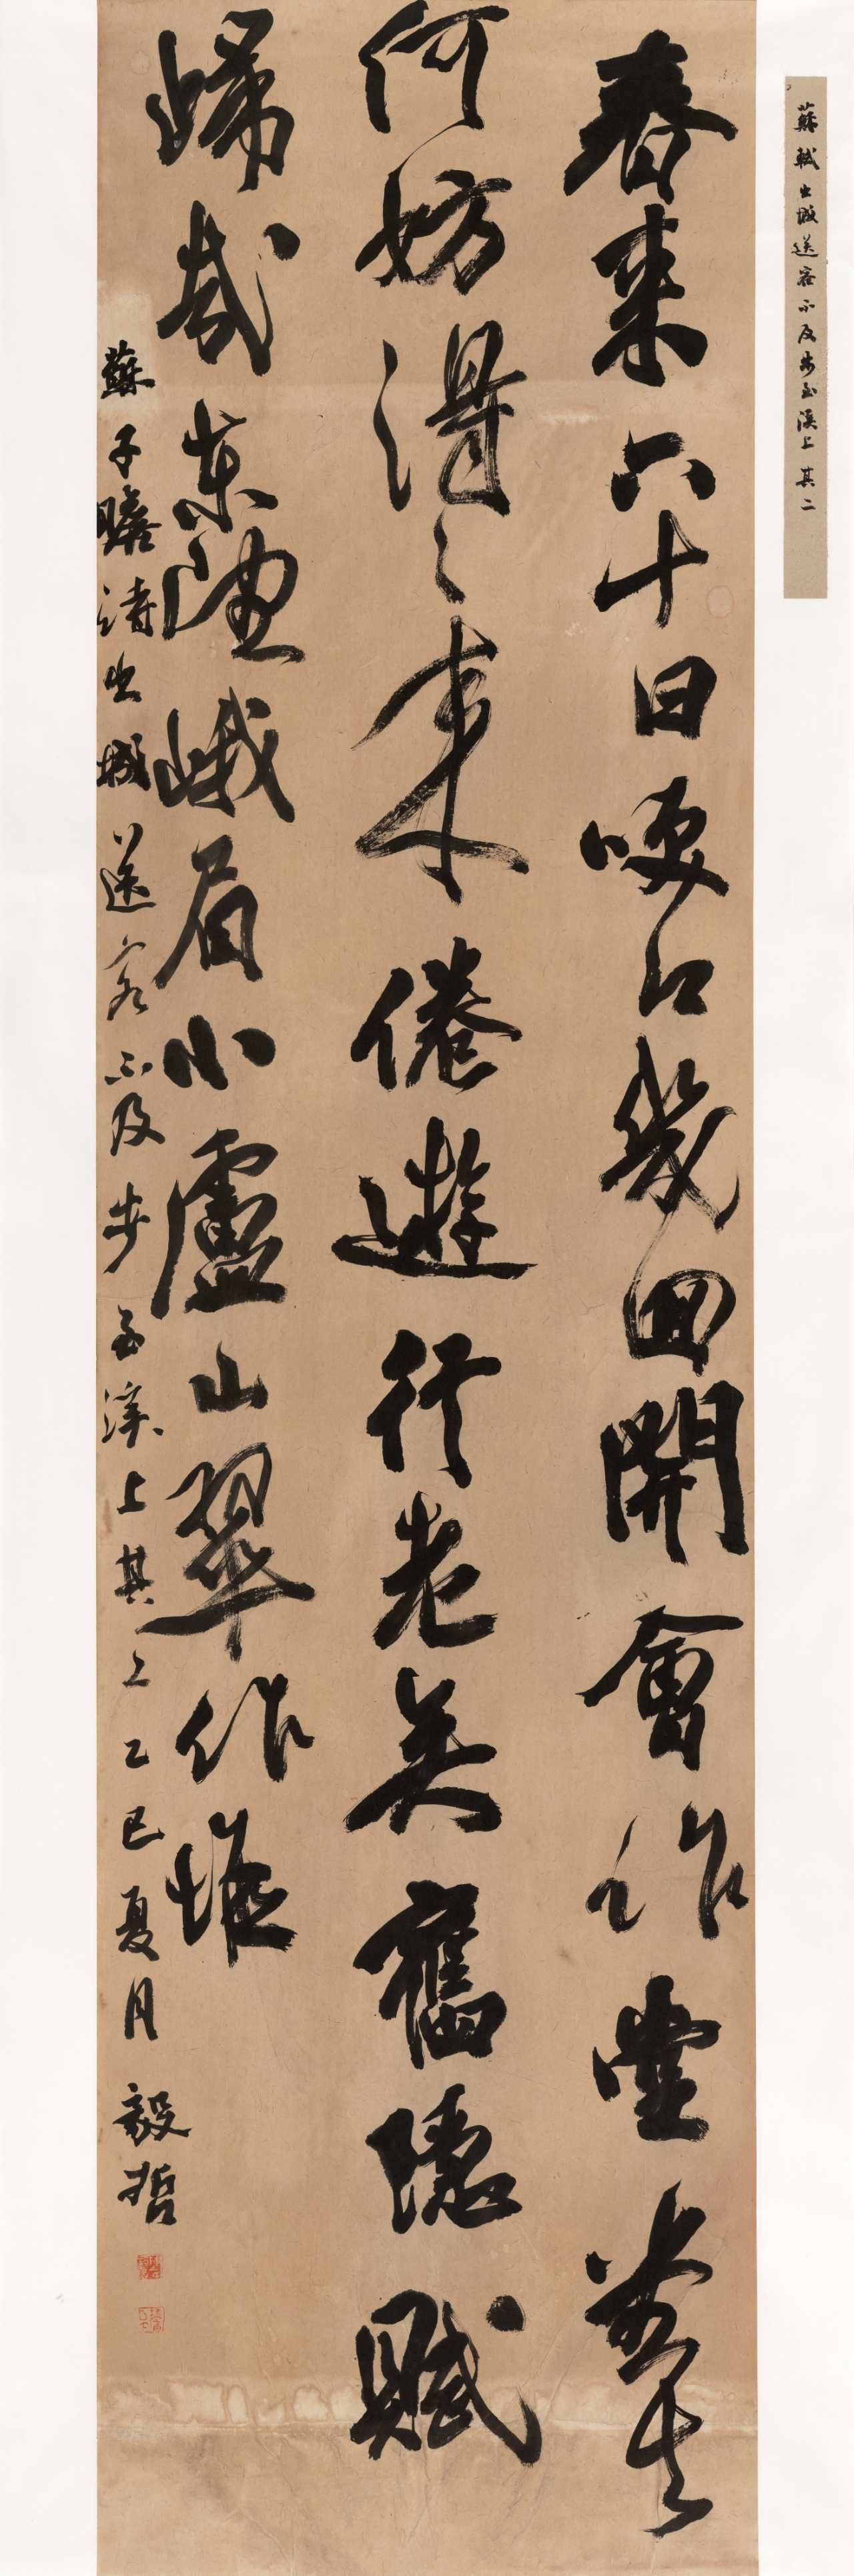 蘇軾出城送客不及步至溪上 其二
春來六十日咲口幾回開會作堂堂去
何妨得〻來倦遊行老矣舊隱賦
歸哉東望峨眉小盧山翠作堆
蘇子瞻詩出城送客不及步至溪上其二乙巳夏月 毅哲